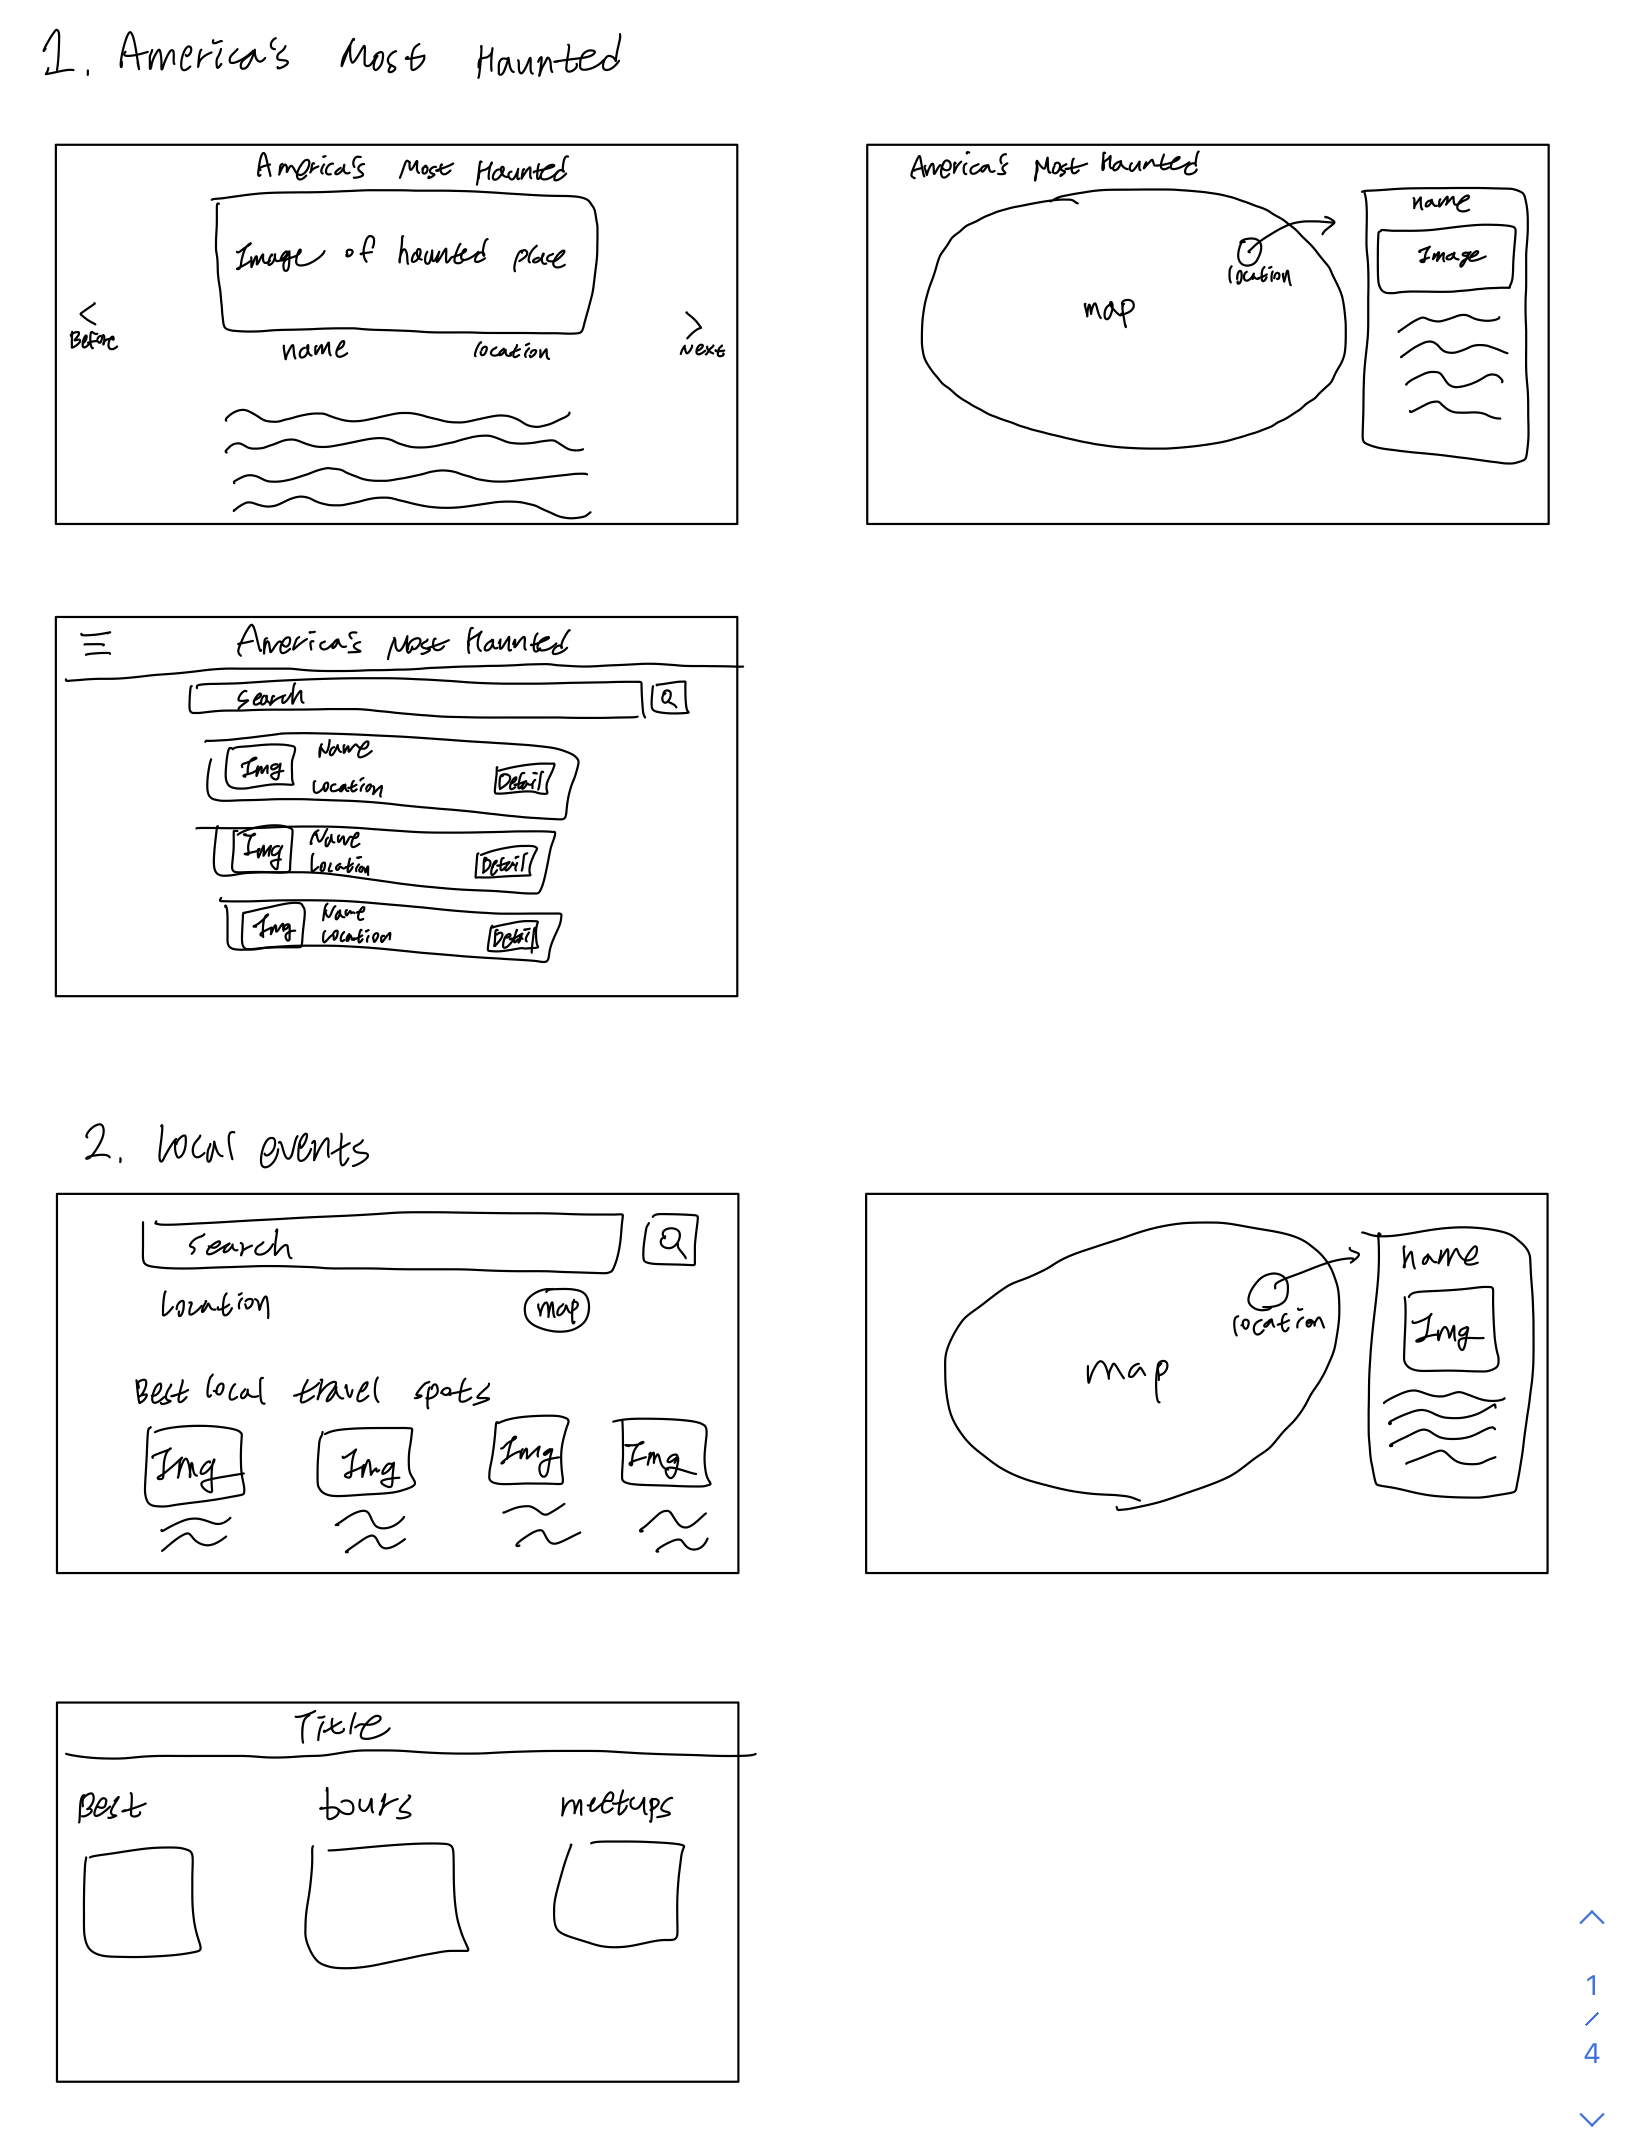 1. America's Most Haunted
America's Most Haunted
Image of haunted place
< Before
> Next
name location
America's Most Haunted
map
location
name
Image
America's Most Haunted
Search
Img Name
Location Detail
Img Name
Location Detail
Img Name
Location Detail
2. Local events
Search
Location map
Best local travel spots
Img Img Img Img
map
location
name
Img
Title
Best tours meetups
1
/
4